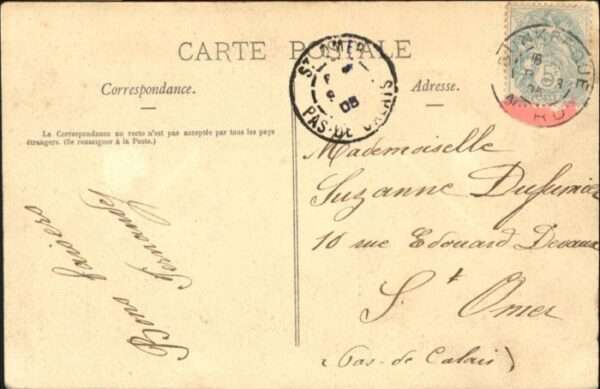 CARTE POSTALE
Correspondance.
Adresse.
La Correspondance au recto n'est pas acceptée par tous les pays
étrangers. (Se renseigner à la Poste.)
ST OMER
05
PAS-DE-CALAIS
DUNKERQUE
05
NORD
Mademoiselle
Suzanne Dufumier
10 rue Edouard Devaux
St Omer
(Pas-de Calais)
Bons baisers
Fernande